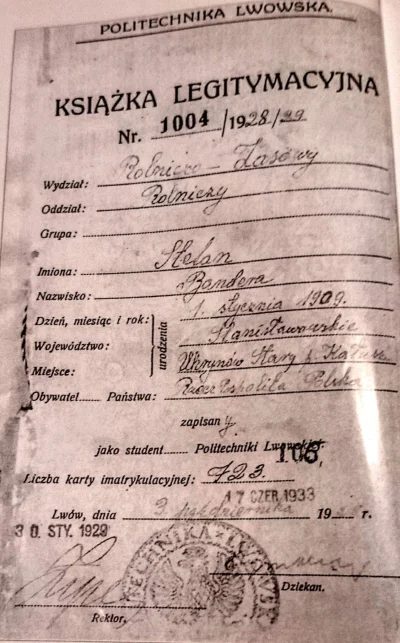 POLITECHNIKA LWOWSKA.
KSIĄŻKA LEGITYMACYJNA
Nr. 1004 / 1928/29
Wydział: Rolniczo-Lasowy
Oddział: Rolniczy
Grupa:
Imiona: Stefan
Nazwisko: Bandera
Dzień, miesiąc i rok: 1. stycznia 1909.
urodzenia
Województwo: Stanisławowskie
Miejsce: Uhrynów Stary p. Kałusz
Obywatel Państwa: Rzeczpospolita Polska
zapisany
jako student Politechniki Lwowskiej.
108,
Liczba karty imatrykulacyjnej: 723.
17 CZER 1933
Lwów, dnia 3 października 19 r.
30. STY. 1929
TECHNIKA LWOWSKA
Rektor.
Dziekan.